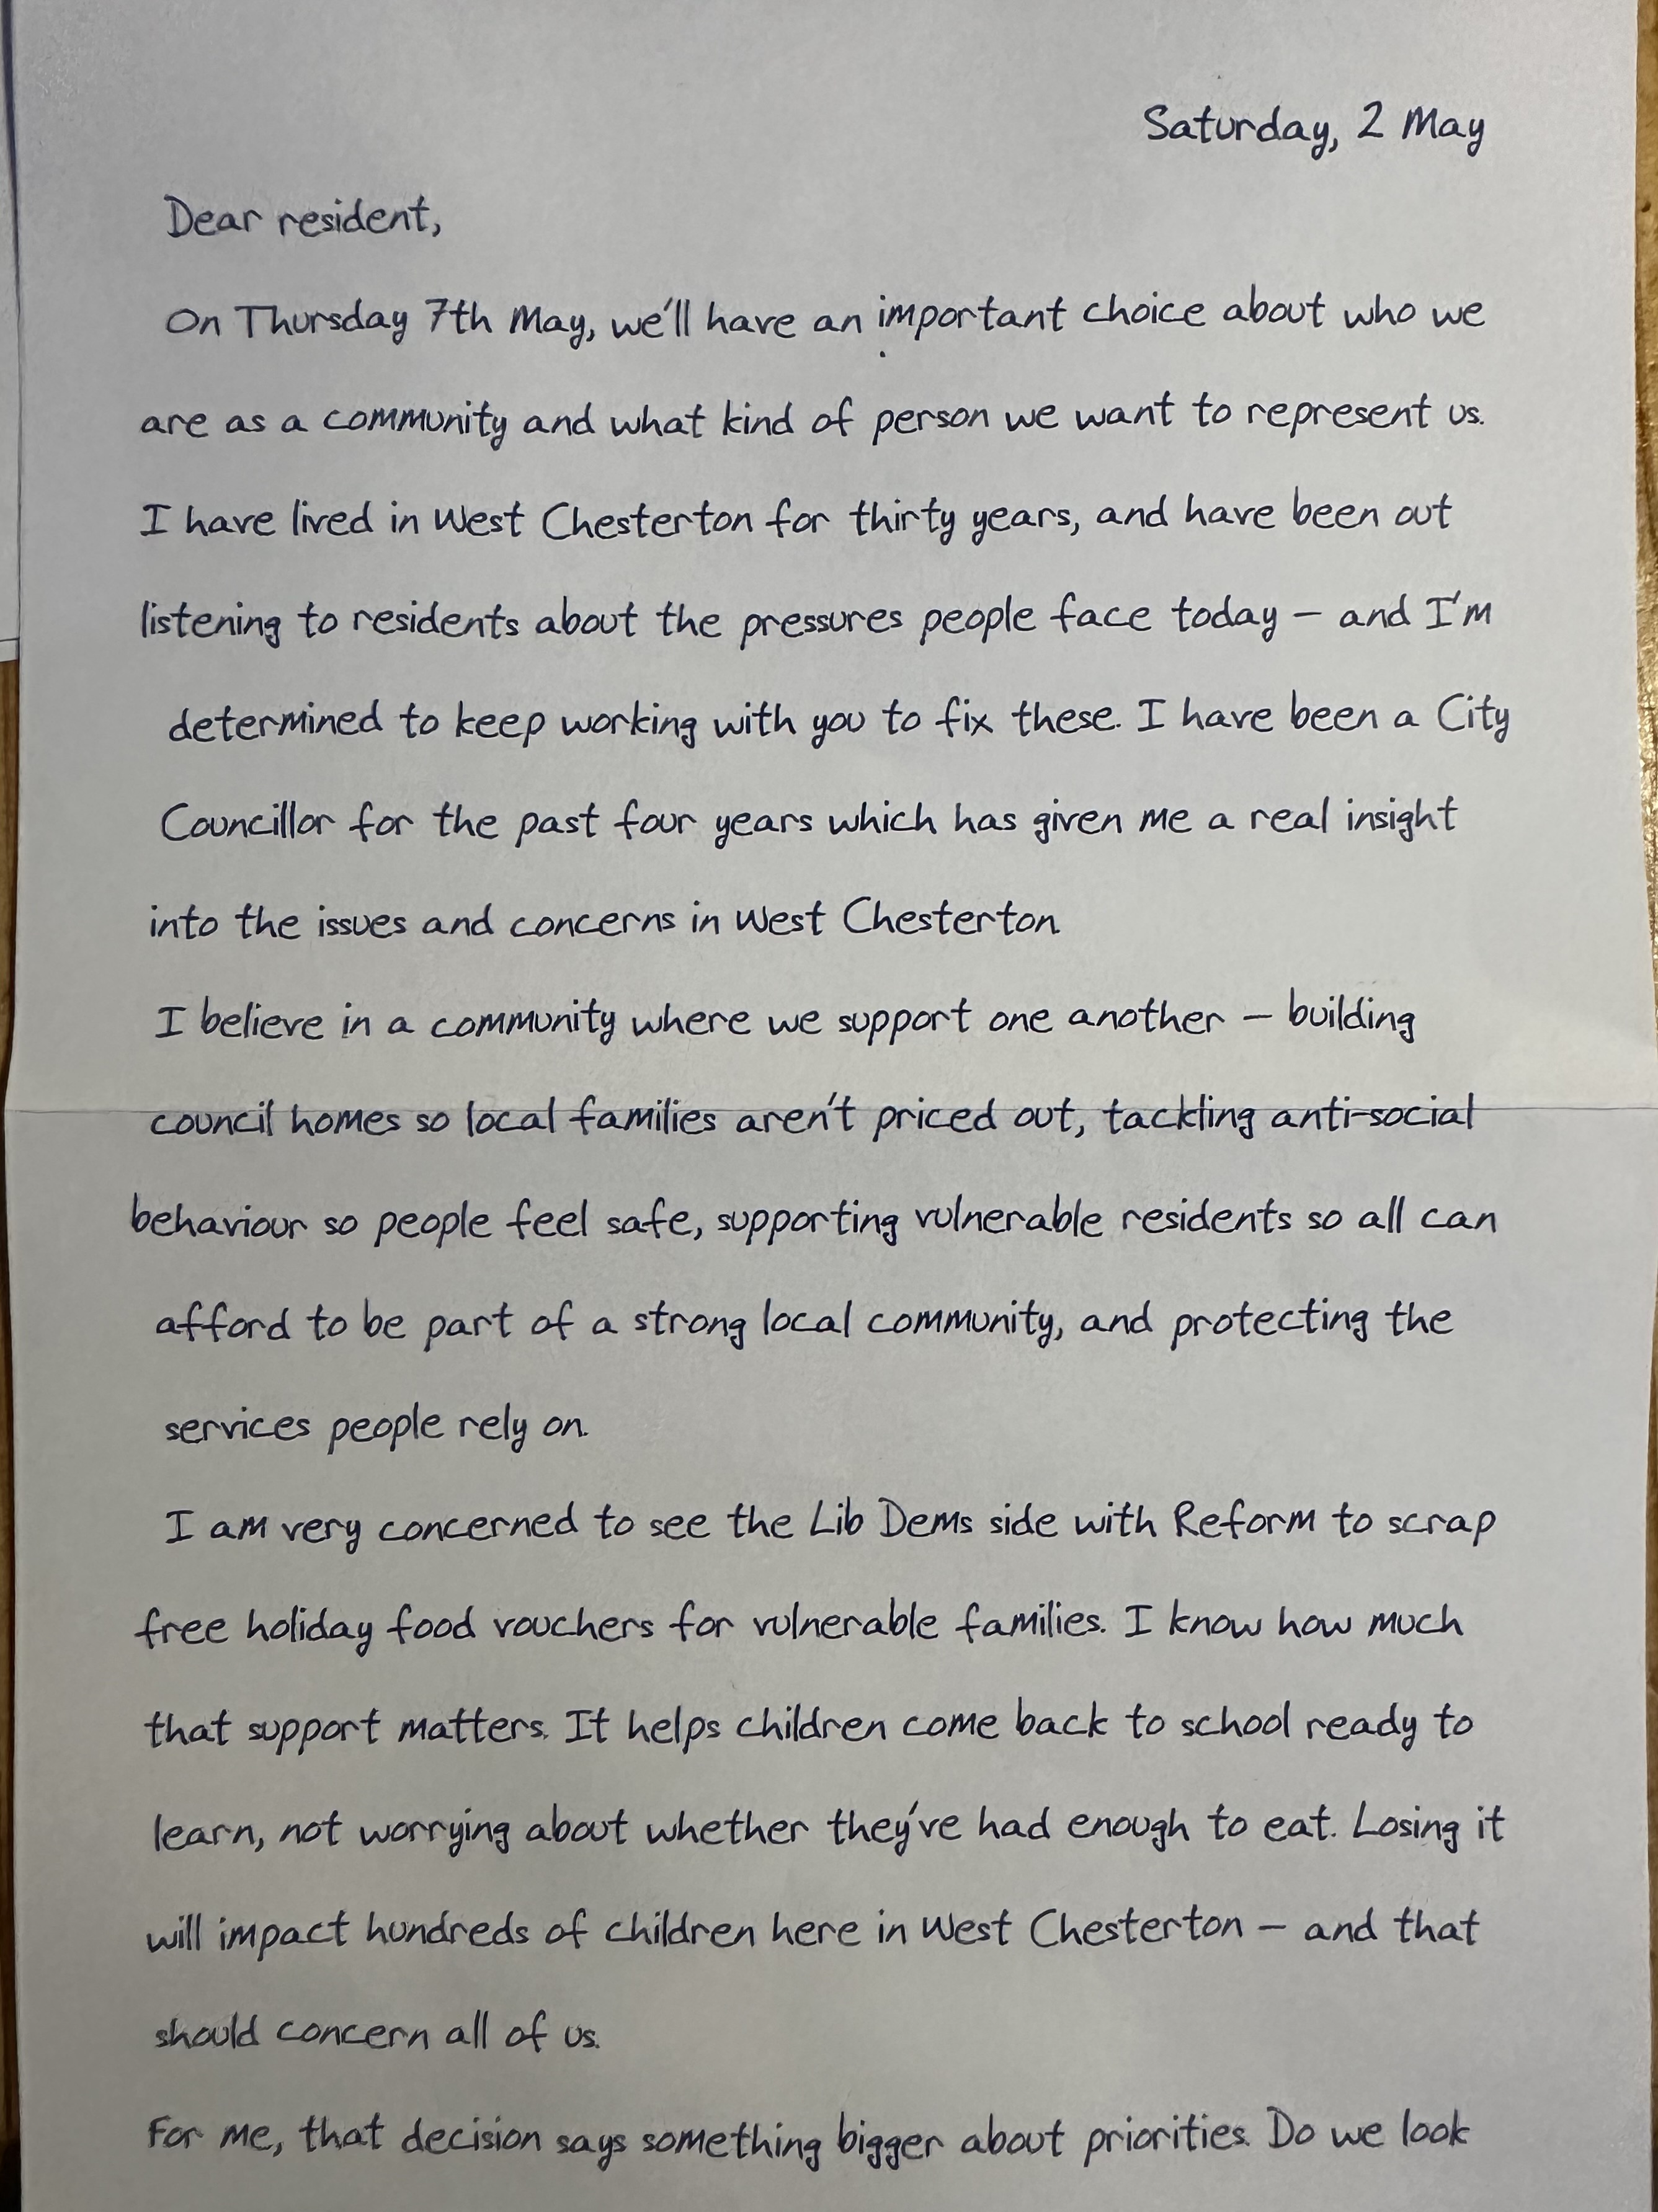 Saturday, 2 May
Dear resident,
On Thursday 7th May, we'll have an important choice about who we
are as a community and what kind of person we want to represent us.
I have lived in West Chesterton for thirty years, and have been out
listening to residents about the pressures people face today – and I'm
determined to keep working with you to fix these. I have been a City
Councillor for the past four years which has given me a real insight
into the issues and concerns in West Chesterton.
I believe in a community where we support one another – building
council homes so local families aren't priced out, tackling anti-social
behaviour so people feel safe, supporting vulnerable residents so all can
afford to be part of a strong local community, and protecting the
services people rely on.
I am very concerned to see the Lib Dems side with Reform to scrap
free holiday food vouchers for vulnerable families. I know how much
that support matters. It helps children come back to school ready to
learn, not worrying about whether they've had enough to eat. Losing it
will impact hundreds of children here in West Chesterton – and that
should concern all of us.
For me, that decision says something bigger about priorities. Do we look